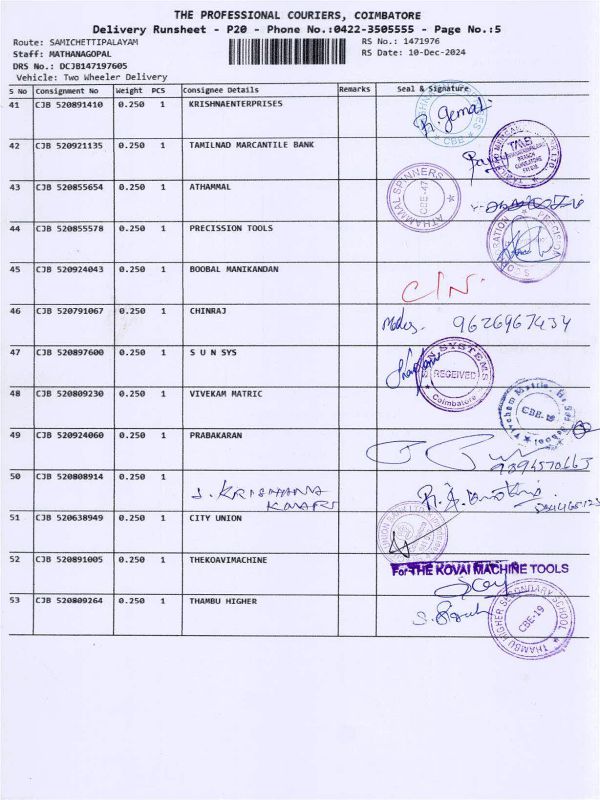 THE PROFESSIONAL COURIERS, COIMBATORE
Delivery Runsheet - P20 - Phone No.:0422-3505555 - Page No.:5
Route: SAMICHETTIPALAYAM RS No.: 1471976
Staff: MATHANAGOPAL RS Date: 10-Dec-2024
DRS No.: DCJB147197605
Vehicle: Two Wheeler Delivery
S No Consignment No Weight PCS Consignee Details Remarks Seal & Signature
41 CJB 520891410 0.250 1 KRISHNAENTERPRISES
CBE
42 CJB 520921135 0.250 1 TAMILNAD MARCANTILE BANK
TMB
BRANCH
43 CJB 520855654 0.250 1 ATHAMMAL
ATHAMMAL SPINNERS
CBE-47
44 CJB 520855578 0.250 1 PRECISSION TOOLS
PRECISION
45 CJB 520924043 0.250 1 BOOBAL MANIKANDAN
46 CJB 520791067 0.250 1 CHINRAJ
9626967434
47 CJB 520897600 0.250 1 S U N SYS
SUN SYSTEMS
RECEIVED
Coimbatore
48 CJB 520809230 0.250 1 VIVEKAM MATRIC
CBE-19
49 CJB 520924060 0.250 1 PRABAKARAN
50 CJB 520808914 0.250 1
J. KRISHNA
KUMAR
51 CJB 520638949 0.250 1 CITY UNION
52 CJB 520891005 0.250 1 THEKOAVIMACHINE
For THE KOVAI MACHINE TOOLS
53 CJB 520809264 0.250 1 THAMBU HIGHER
THAMBU HIGHER SECONDARY SCHOOL
CBE-19